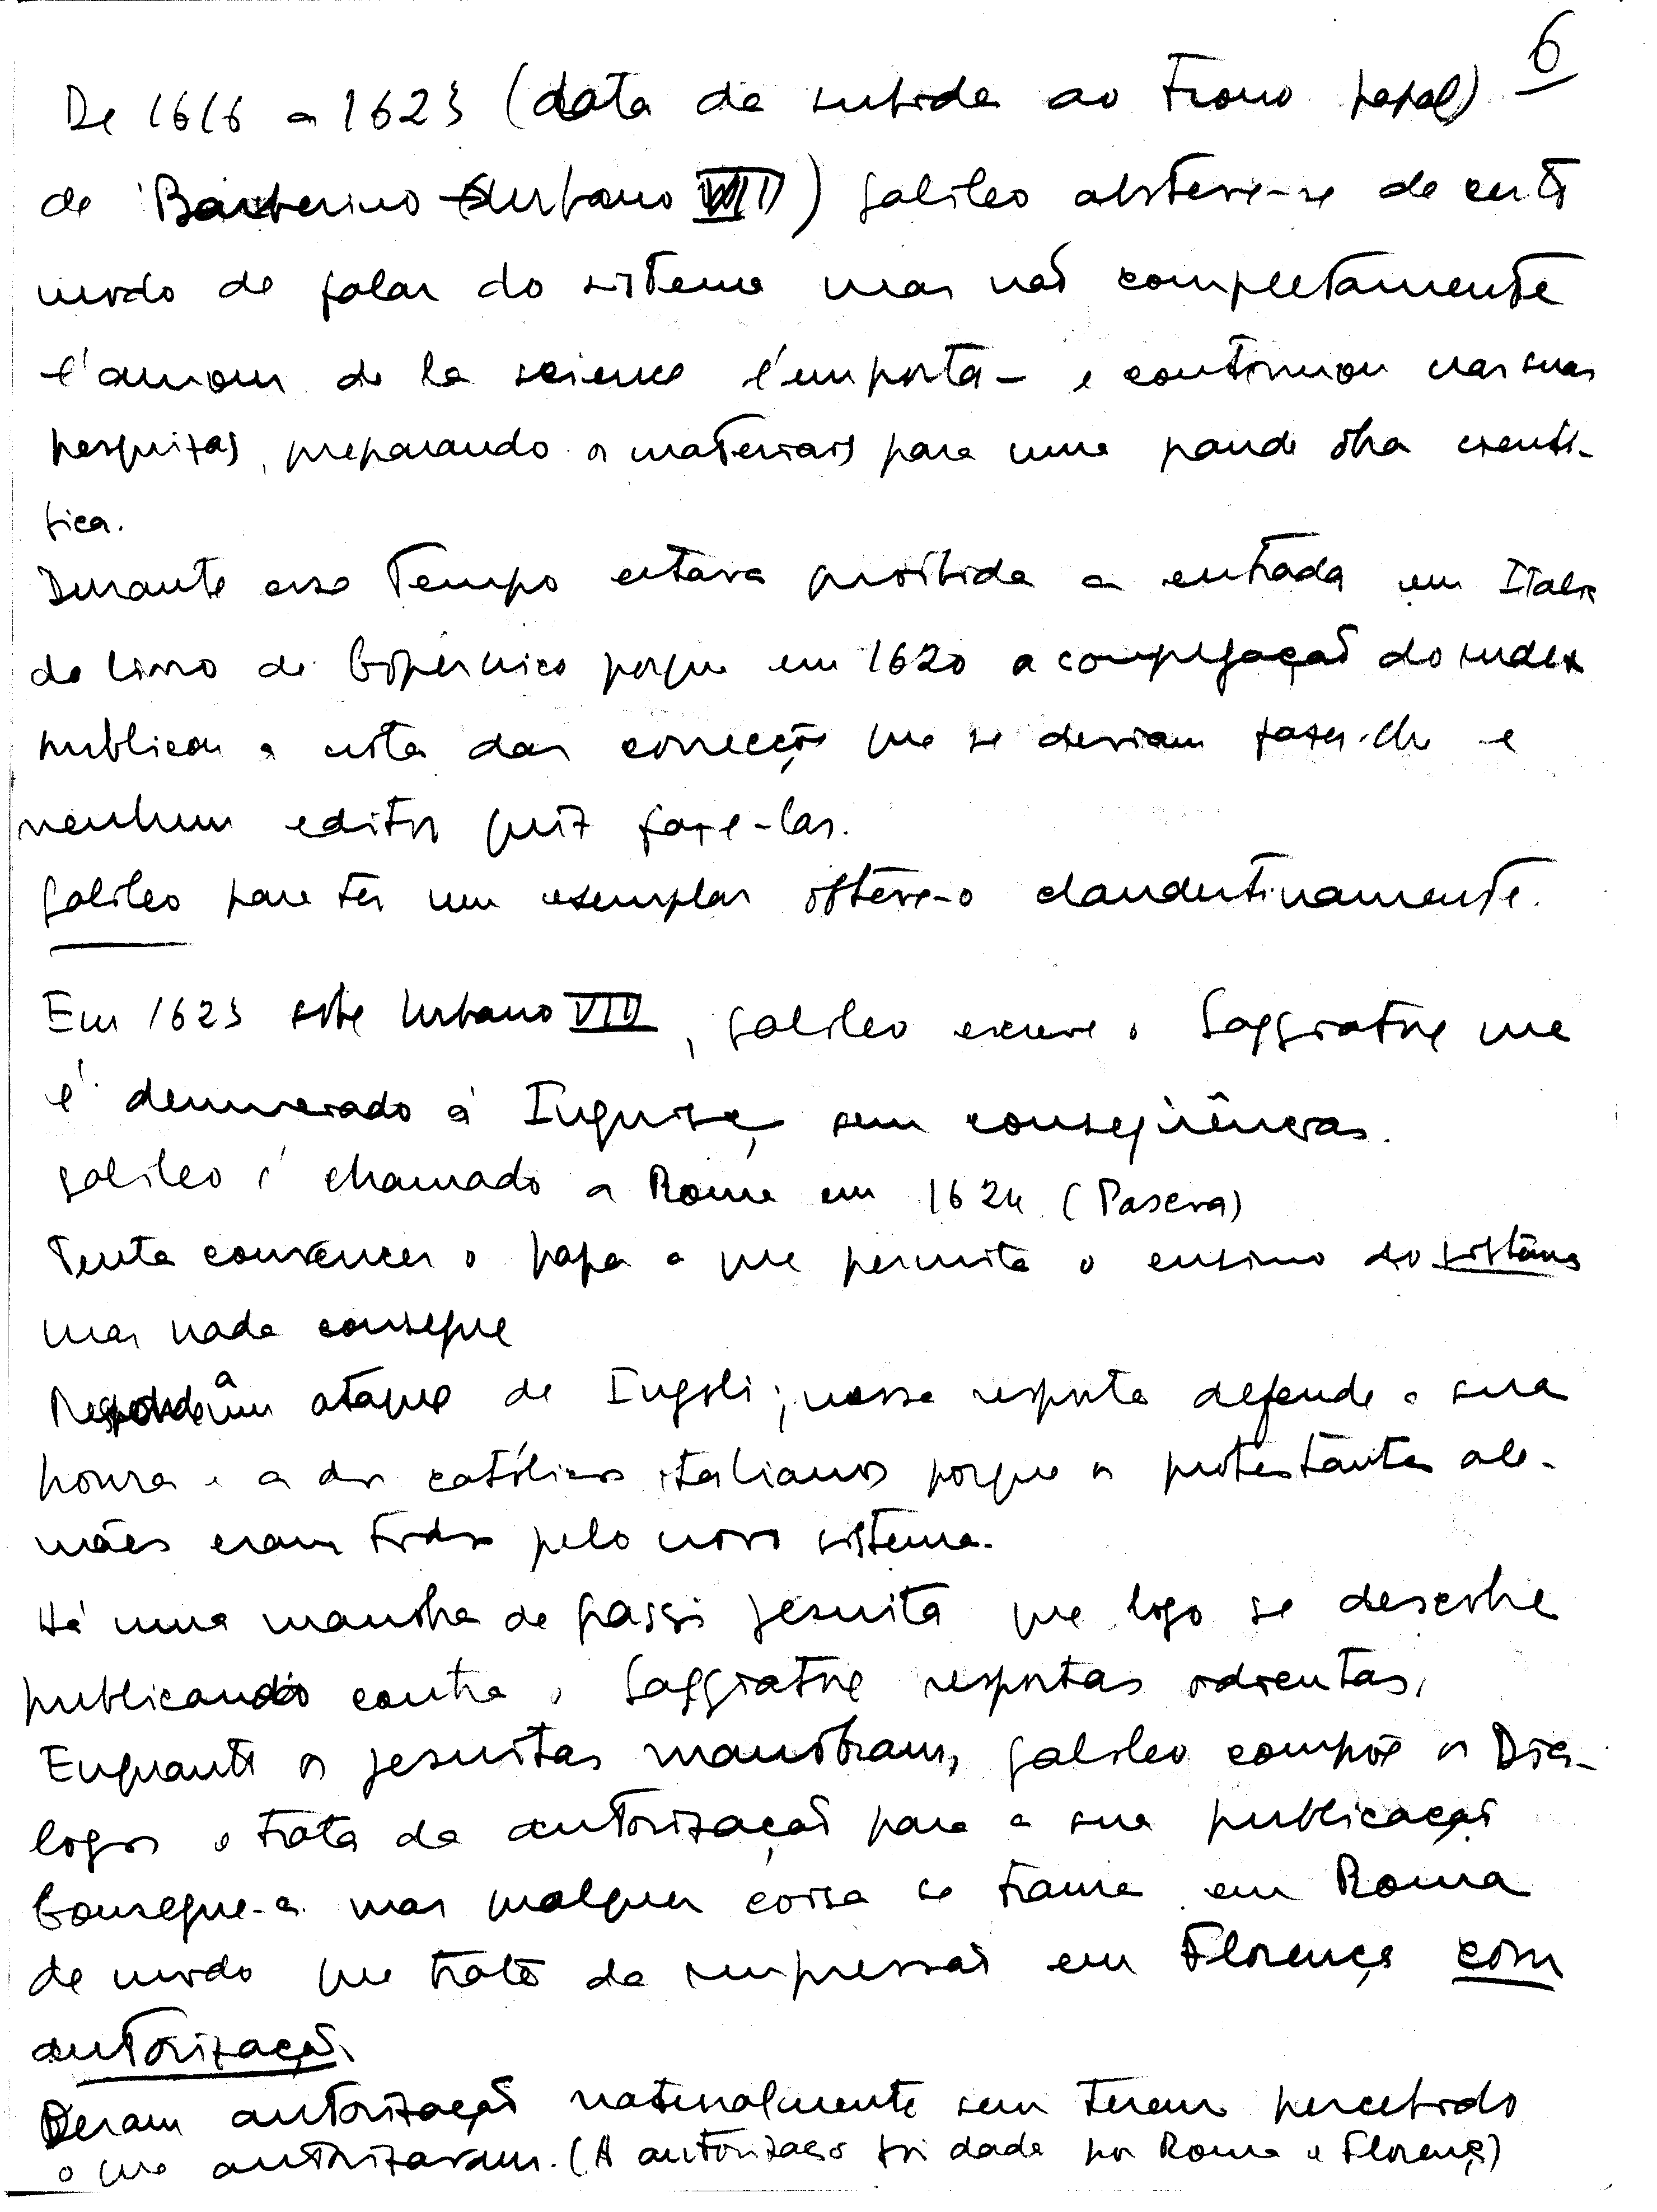 6
De 1616 a 1623 (data da subida ao trono papal)
de Barberino - Urbano VIII) Galileo absteve-se de certo
modo de falar do sistema mas não completamente
l'amour de la science l'emporta - e continuou nas suas
pesquizas, preparando os materiais para uma grande obra cientí-
fica.
Durante esse tempo estava proibida a entrada em Italia
do livro de Copérnico porque em 1620 a congregação do index
publicou a lista das correcções que se deviam fazer-lhe e
nenhum editor quiz faze-las.
Galileo para ter um exemplar obteve-o clandestinamente.
Em 1623 sobe Urbano VIII, Galileo escreve o Saggiatore que
é denunciado à Inquisição sem conseqüências.
Galileo é chamado a Roma em 1624 (Pascoa)
Tenta convencer o papa a que permita o ensino do sistema
mas nada consegue
Responde a um ataque de Ingoli; nessa resposta defende a sua
honra e a dos católicos italianos porque os protestantes ale-
mães eram todos pelo novo sistema.
Há uma manobra de Grassi jesuita que logo se descobre
publicando contra o Saggiatore respostas odientas.
Enquanto os jesuitas manobram, Galileo compõe os Dia-
logos e trata da autorização para a sua publicação
Consegue-a mas qualquer coisa se trama em Roma
de modo que trata da impressão em Florença com
autorização.
Deram autorização naturalmente sem terem percebido
o que autorizavam. (A autorização foi dada por Roma e Florença)